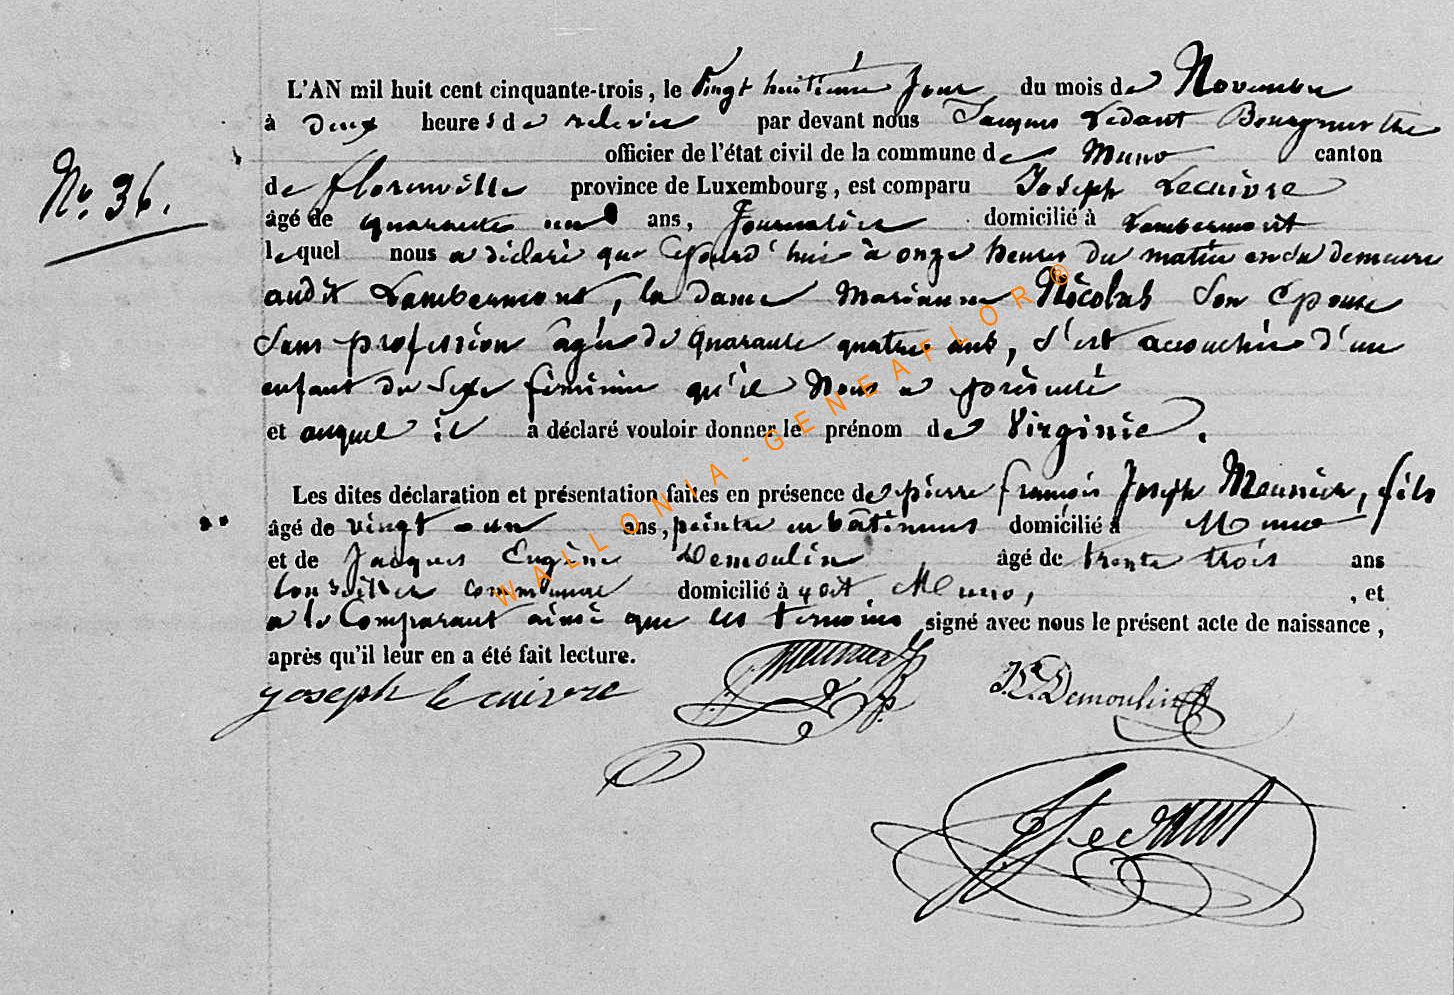 L'AN mil huit cent cinquante-trois, le Vingt huitième Jour du mois de Novembre
à deux heures de relevée par devant nous Jacques Ledant Bourgmestre
officier de l'état civil de la commune de Muno canton
No. 36.
de florenville province de Luxembourg, est comparu Joseph Lecuivre
âgé de quarante un ans, Journalier domicilié à Lambermont
lequel nous a déclaré que cejourd'hui à onze heures du matin en sa demeure
audit Lambermont, la dame Marianne Nicolas Son Epouse
Sans profession âgée de quarante quatre ans, s'est accouchée d'un
enfant du Sexe féminin qu'il Nous a présenté
et auquel il a déclaré vouloir donner le prénom de Virginie.
Les dites déclaration et présentation faites en présence de pierre françois Joseph Meunier, fils
âgé de vingt un ans, peintre en bâtiments domicilié à Muno
et de Jacques Eugène Demoulin âgé de trente trois ans
Conseiller communal domicilié à Muno, , et
a le Comparant ainsi que les témoins signé avec nous le présent acte de naissance,
après qu'il leur en a été fait lecture.
joseph le cuivre Meunier J. E. Demoulin
J Ledant
WALLONIA-GENEAFLOR®